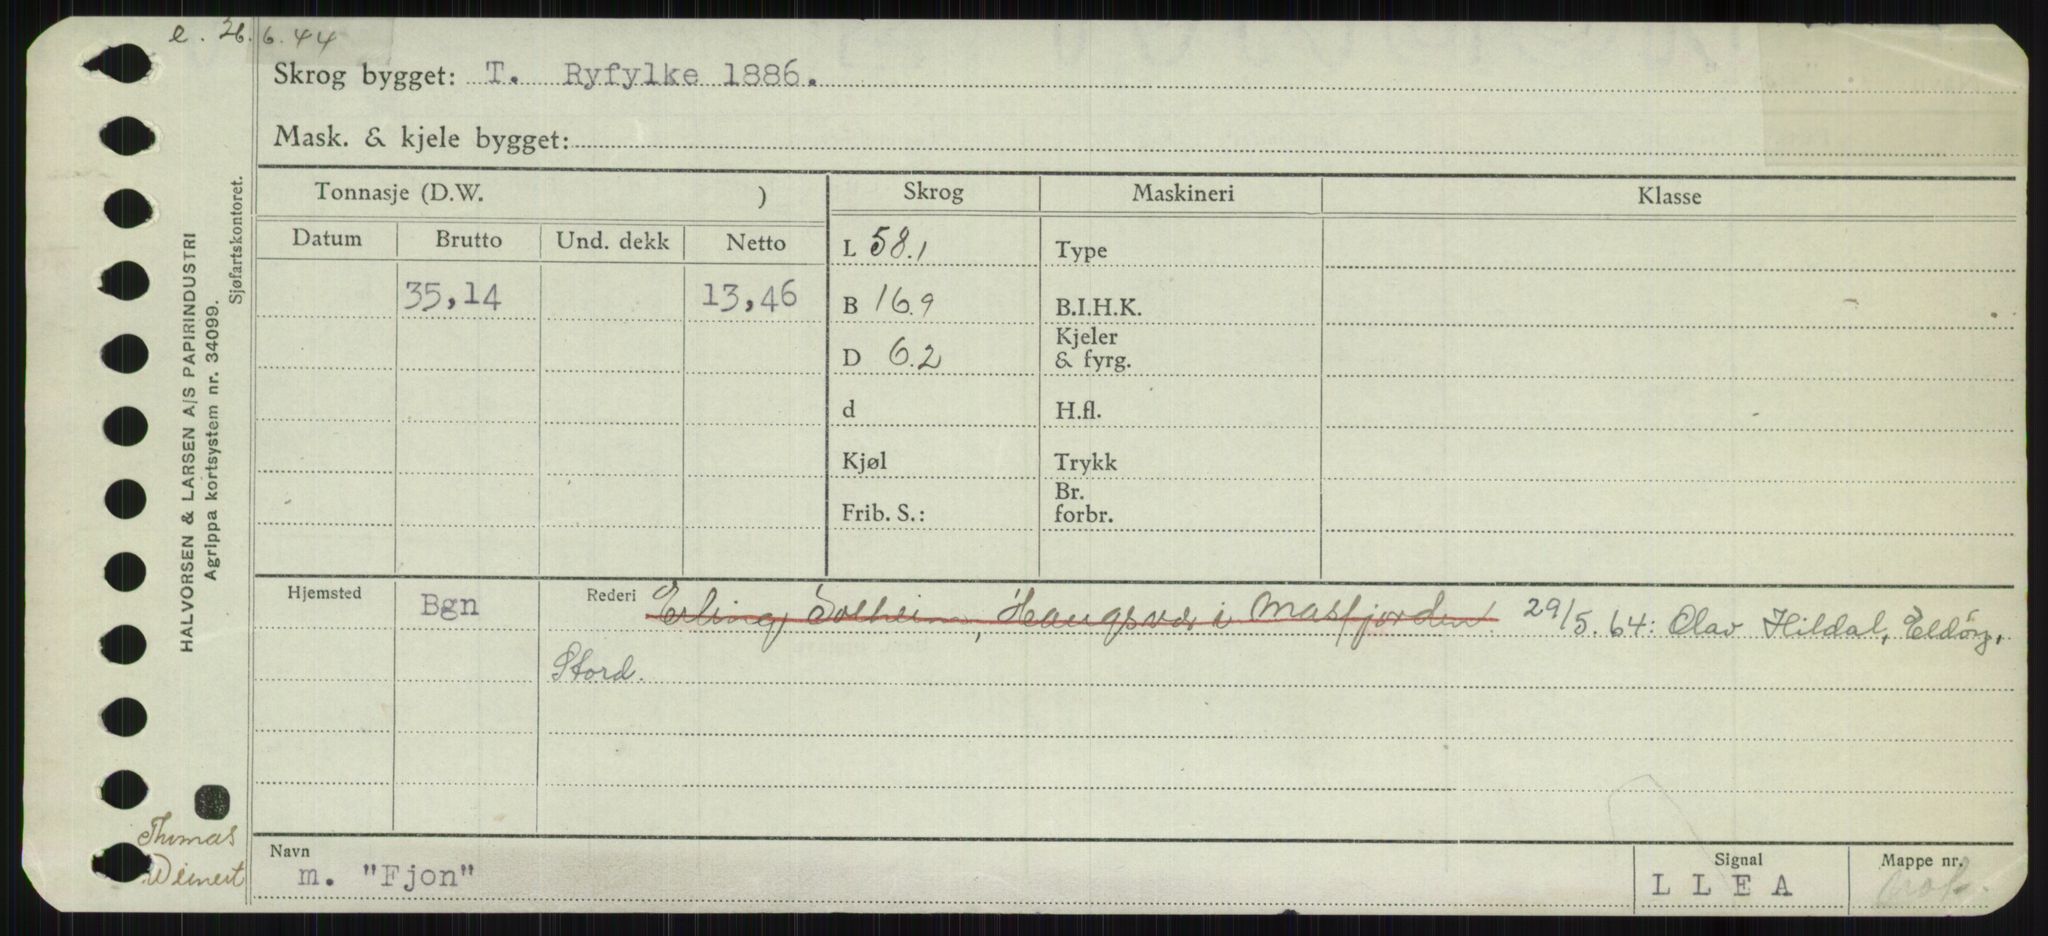 e. 26.6.44
Skrog bygget: T. Ryfylke 1886.
Mask. & kjele bygget:
HALVORSEN & LARSEN A/S PAPIRINDUSTRI
Agrippa kortsystem nr. 34099.
Sjøfartskontoret.
Tonnasje (D.W. )
Skrog Maskineri Klasse
Datum Brutto Und. dekk Netto
35,14 13,46
L 58.1 Type
B 16.9 B.I.H.K.
D 6.2 Kjeler & fyrg.
d H.fl.
Kjøl Trykk
Frib. S.: Br. forbr.
Hjemsted Bgn Rederi Erling Solheim, Haugsvær i Masfjorden. 29/5.64: Olav Hildal, Eldöy,
Stord.
Thomas
Weinert
Navn Signal Mappe nr.
m. "Fjon" L L E A